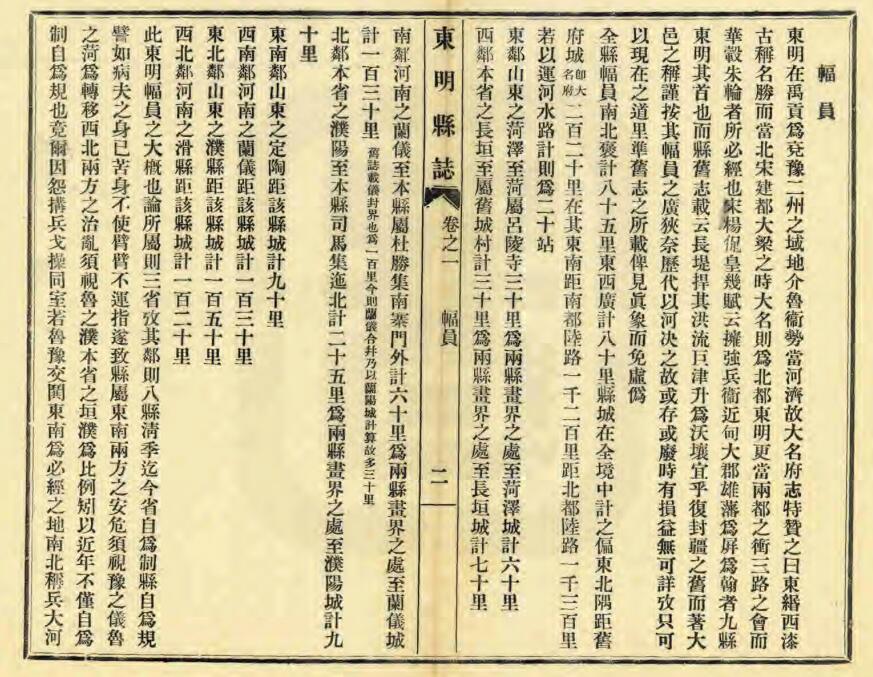 幅員
東明在禹貢爲兗豫二州之域地介魯衞勢當河濟故大名府志特贊之曰東緡西漆
古稱名勝而當北宋建都大梁之時大名則爲北都東明更當兩都之衝三路之會而
華轂朱輪者所必經也宋楊侃皇畿賦云擁強兵衞近甸大郡雄藩爲屛爲翰者九縣
東明其首也而縣舊志載云長堤捍其洪流巨津升爲沃壤宜乎復封疆之舊而著大
邑之稱謹按其幅員之廣狹奈歷代以河决之故或存或廢時有損益無可詳攷只可
以現在之道里準舊志之所載俾見眞象而免虛僞
全縣幅員南北袤計八十五里東西廣計八十里縣城在全境中計之偏東北隅距舊
府城卽大名府二百二十里在其東南距南都陸路一千二百里距北都陸路一千三百里
若以運河水路計則爲二十站
東鄰山東之菏澤至菏屬呂陵寺三十里爲兩縣畫界之處至菏澤城計六十里
西鄰本省之長垣至屬舊城村計三十里爲兩縣畫界之處至長垣城計七十里
東明縣誌 卷之一 幅員 二
南鄰河南之蘭儀至本縣屬杜勝集南寨門外計六十里爲兩縣畫界之處至蘭儀城
計一百三十里舊誌載儀封界也爲一百里今則蘭儀合幷乃以蘭陽城計算故多三十里
北鄰本省之濮陽至本縣司馬集迤北計二十五里爲兩縣畫界之處至濮陽城計九
十里
東南鄰山東之定陶距該縣城計九十里
西南鄰河南之蘭儀距該縣城計一百三十里
東北鄰山東之濮縣距該縣城計一百五十里
西北鄰河南之滑縣距該縣城計一百二十里
此東明幅員之大槪也論所屬則三省攷其鄰則八縣淸季迄今省自爲制縣自爲規
譬如病夫之身已苦身不使臂臂不運指遂致縣屬東南兩方之安危須視豫之儀魯
之菏爲轉移西北兩方之治亂須視魯之濮本省之垣濮爲比例矧以近年不僅自爲
制自爲規也竟爾因怨搆兵戈操同室若魯豫交鬨東南爲必經之地南北稱兵大河